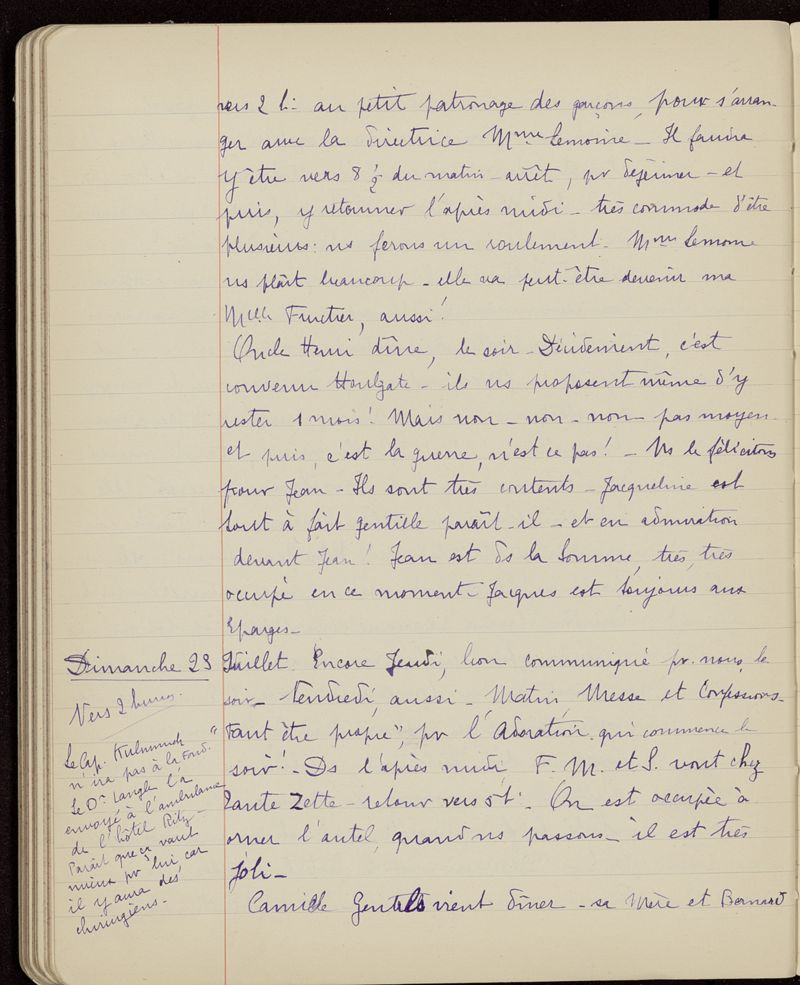 vers 2 h. au petit patronage des garçons, pour s'arran-
ger avec la directrice Mme Lemoine - Il faudra
y être vers 8 ½ du matin - arrêt, pr déjeuner - et
puis, y retourner l'après midi - très commode d'être
plusieurs: ns ferons un roulement - Mme Lemoine
ns plaît beaucoup - elle va peut-être devenir ma
Melle aussi!
Oncle Henri dîne, le soir - Décidément, c'est
convenu Houlgate - ils ns proposent même d'y
rester 1 mois! Mais non - non - non - pas moyen
et puis, c'est la guerre, n'est ce pas! - Ns le félicitons
pour Jean - Ils sont très contents - Jacqueline est
tout à fait gentille paraît-il - et en admiration
devant Jean! Jean est ds la Somme, très, très
occupé en ce moment - Jacques est toujours aux
Eparges -
Dimanche 23 Juillet. Encore Jeudi, bon communiqué pr. nous, le
soir - Vendredi, aussi - Matin, Messe et Confessions -
"Faut être propre", pr l'Adoration qui commence le
soir! - Ds l'après midi F. M. et S. vont chez
Tante Zette - retour vers 5h. On est occupée à
orner l'autel, quand ns passons - il est très
joli -
Camille Gentils vient dîner - sa Mère et Bernard
Vers 2 heures.
Le Cap.
n'ira pas à la Fond.
Le Dr Langle l'a
envoyé à l'ambulance
de l'hôtel Ritz -
Paraît que ça vaut
mieux pr lui car
il y aura des
chirurgiens -